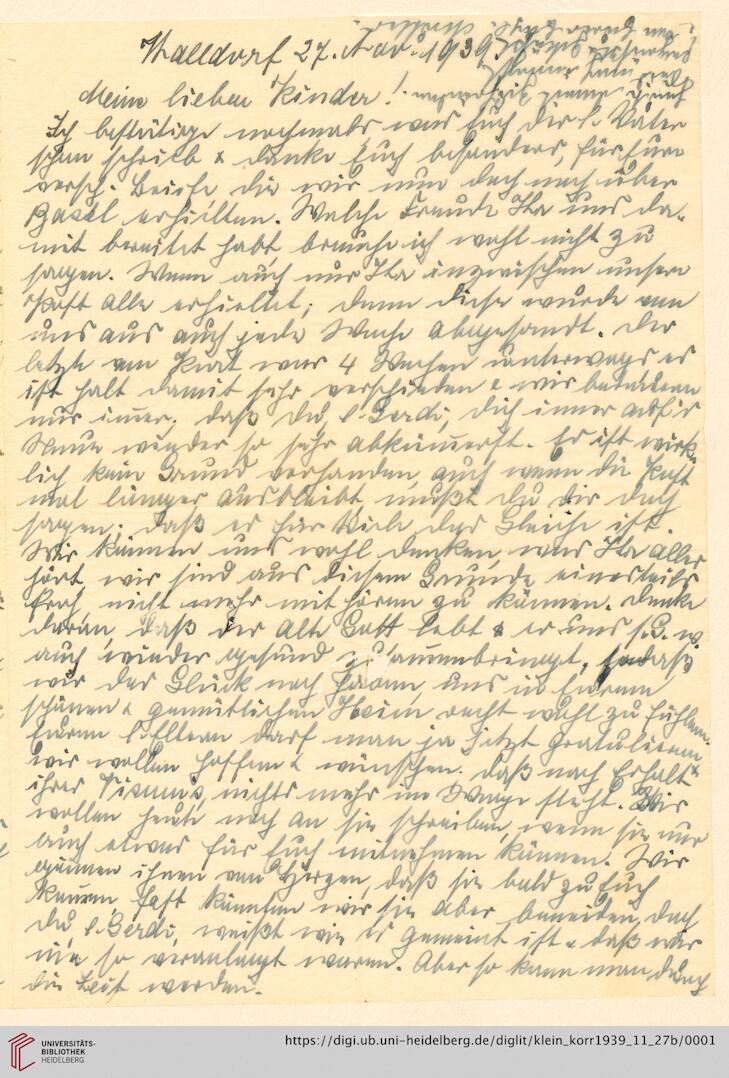 Walldorf 27. Nov. 1939.
Meine lieben Kinder!
Ich bestätige nochmals was Euch der l. Vater
schon schrieb & danke Euch besonders, für Eure
versch. Briefe die wir nun doch noch über
Basel erhielten. Welche Freude Ihr uns da-
mit bereitet habt, brauche ich wohl nicht zu
sagen. Wenn auch nur Ihr inzwischen unsere
Post alle erhieltet; denn diese wurde von
uns aus auch jede Woche abgesandt. Der
letzte von Kurt war 4 Wochen unterwegs es
ist halt damit sehr verschieden & wir bedauern
nur immer, daß Du, l. Gerdi, Dich immer
wieder so sehr abkümmerst. Es ist wirk-
lich kein Grund vorhanden, auch wenn die Post
mal länger ausbleibt mußt Du Dir doch
sagen, daß es für Viele das Gleiche ist.
Wir können uns wohl denken, was Ihr alles
hört, wir sind aus diesem Grunde einesteils
froh, nicht mehr mithören zu können. Denke
daran, daß der alte Gott lebt & er uns s. G. w.
auch wieder gesund zusammenbringt, sodaß
wir das Glück noch haben, uns in Eurem
schönen & gemütlichen Heim recht wohl zu fühlen.
Euren l. Eltern darf man ja jetzt gratulieren &
wir wollen hoffen & wünschen, daß nach Erhalt
ihrer Visums, nichts mehr im Wege steht. Wir
wollen heute noch an sie schreiben, wenn sie nur
auch etwas für Euch mitnehmen können. Wir
gönnen ihnen von Herzen, daß sie bald zu Euch
kommen, fast könnten wir sie aber beneiden, doch
Du, l. Gerdi, weißt wie es gemeint ist & daß wir
nie so veranlagt waren. Aber so kann man durch
die Zeit werden.
UNIVERSITÄTS-
BIBLIOTHEK
HEIDELBERG
https://digi.ub.uni-heidelberg.de/diglit/klein_korr1939_11_27b/0001